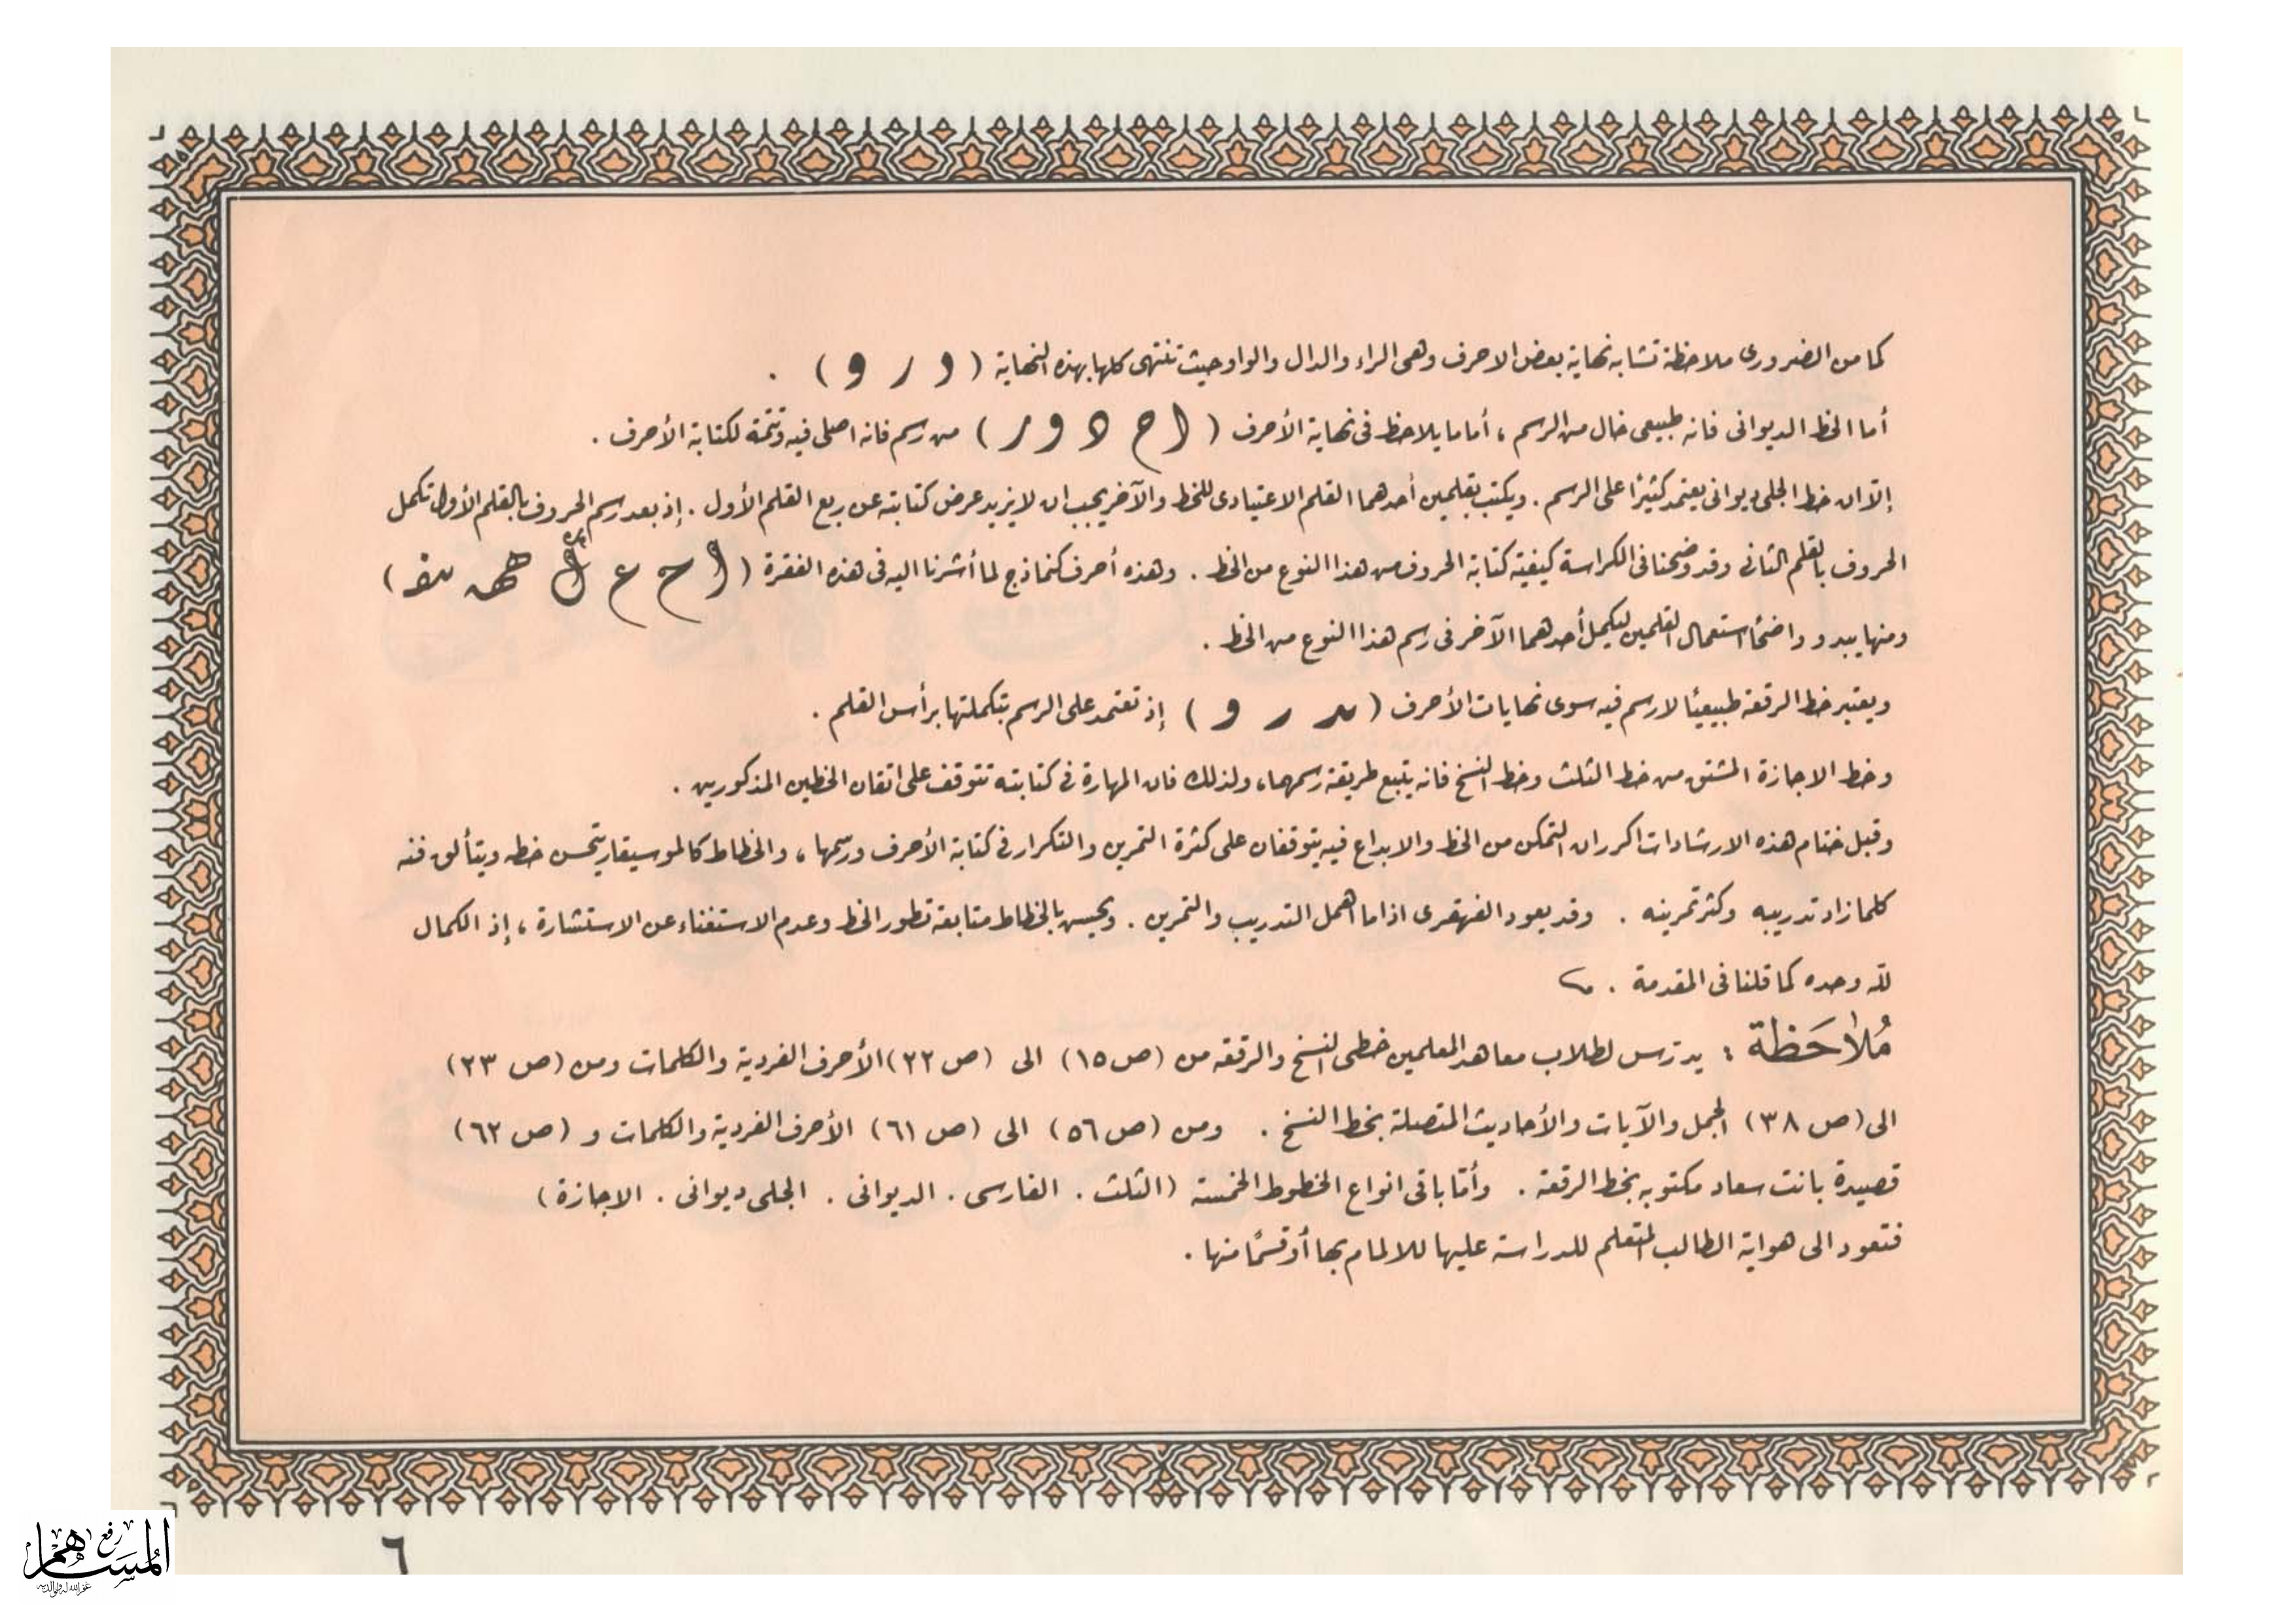 كما من الضرورى ملاحظة تشابه نهاية بعض الاحرف وهى الراء والدال والواو حيث تنتهى كلها بهذه النهاية ( د ر و ) .
أما الخط الديوانى فانه طبيعى خال من الرسم ، أما ما يلاحظ فى نهاية الأحرف ( ا ح د و ر ) من رسم فانه اصلى فيه وتتمة لكتابة الأحرف .
إلّا ان خط الجلى ديوانى يعتمد كثيرًا على الرسم . ويكتب بقلمين أحدهما القلم الاعتيادى للخط والآخر يجب ان لا يزيد عرض كتابته عن ربع القلم الأول . إذ بعد رسم الحروف بالقلم الأول تكمل
الحروف بالقلم الثانى وقد وضحنا فى الكراسة كيفية كتابة الحروف من هذا النوع من الخط . وهذه أحرف كنماذج لما أشرنا اليه فى هذه الفقرة ( ا ح ع ك هـ )
ومنها يبدو واضحًا استعمال القلمين ليكمل أحدهما الآخر فى رسم هذا النوع من الخط .
ويعتبر خط الرقعة طبيعيًا لا رسم فيه سوى نهايات الأحرف ( د ر و ) إذ تعتمد على الرسم بتكملتها برأس القلم .
وخط الاجازة المشتق من خط الثلث وخط النسخ فانه يتبع طريقة رسمهما ، ولذلك فان المهارة فى كتابته تتوقف على اتقان الخطين المذكورين .
وقبل ختام هذه الارشادات اكرر ان التمكن من الخط والابداع فيه يتوقفان على كثرة التمرين والتكرار فى كتابة الأحرف ورسمها ، والخطاط كالموسيقار يتحسن خطه ويتألق فنه
كلما زاد تدريبه وكثر تمرينه . وقد يعود القهقرى اذا ما اهمل التدريب والتمرين . ويحسن بالخطاط متابعة تطور الخط وعدم الاستغناء عن الاستشارة ، إذ الكمال
لله وحده كما قلنا فى المقدمة .
مُلاحَظة : يدرس لطلاب معاهد المعلمين خطى النسخ والرقعة من (ص ١٥) الى (ص ٢٢) الأحرف الفردية والكلمات ومن (ص ٢٣)
الى (ص ٣٨) الجمل والآيات والأحاديث المتصلة بخط النسخ . ومن (ص ٥٦) الى (ص ٦١) الأحرف الفردية والكلمات و (ص ٦٢)
قصيدة بانت سعاد مكتوبه بخط الرقعة . وأمّا باقى انواع الخطوط الخمسة (الثلث . الفارسى . الديوانى . الجلى ديوانى . الاجازة )
فتعود الى هواية الطالب المتعلم للدراسة عليها للالمام بها أو قسمًا منها .
٦
رفع المساهم
غفر الله له ولوالديه